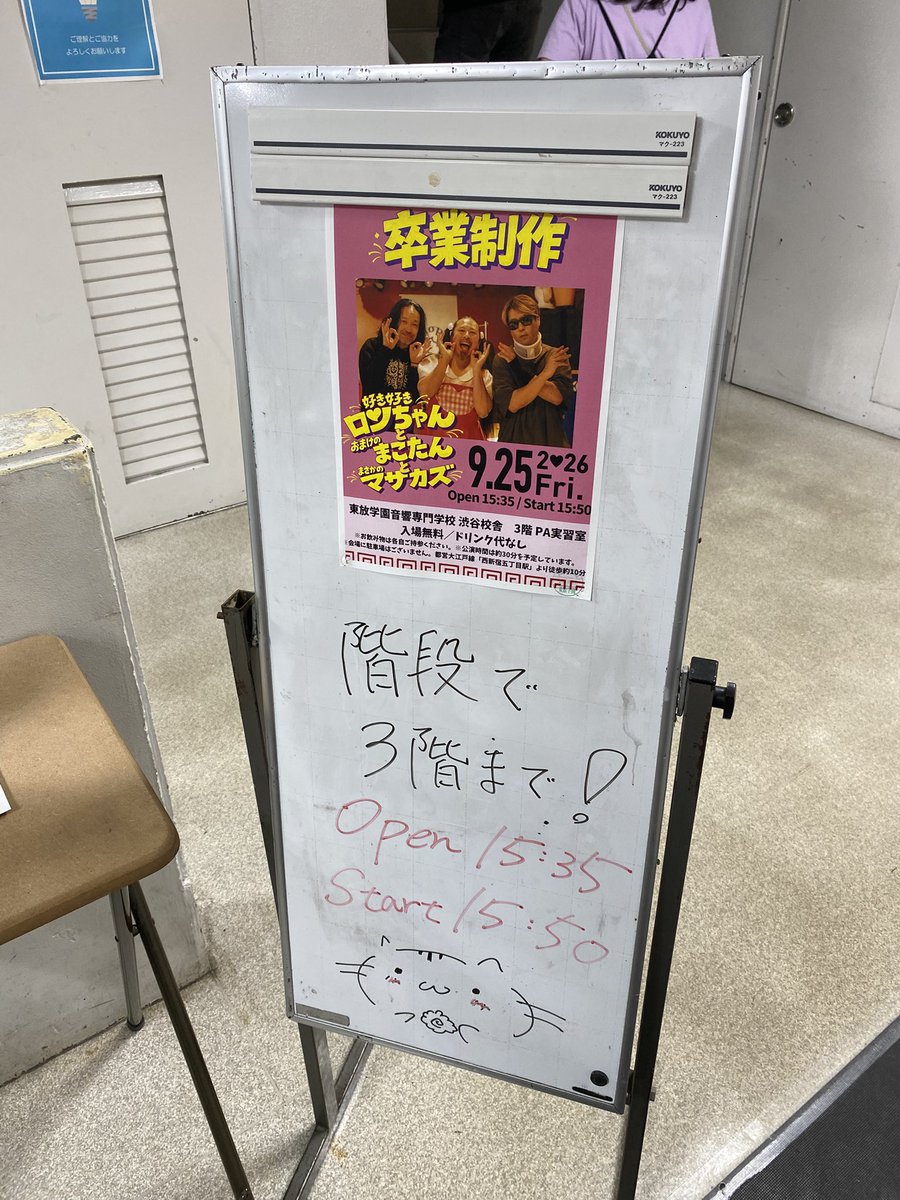 ご理解とご協力を
よろしくお願いします
KOKUYO
マク-223
KOKUYO
マク-223
卒業制作
好き好き
ロンちゃん
と
おまけの
まこたん
と
まさかの
マザカズ
9.25 2♥26 Fri.
Open 15:35 / Start 15:50
東放学園音響専門学校 渋谷校舎 3階 PA実習室
入場無料／ドリンク代なし
※お飲み物は各自ご持参ください。※公演時間は約30分を予定しています。
※会場に駐車場はございません。都営大江戸線「西新宿五丁目駅」より徒歩約10分
階段で
3階まで!
Open 15:35
Start 15:50